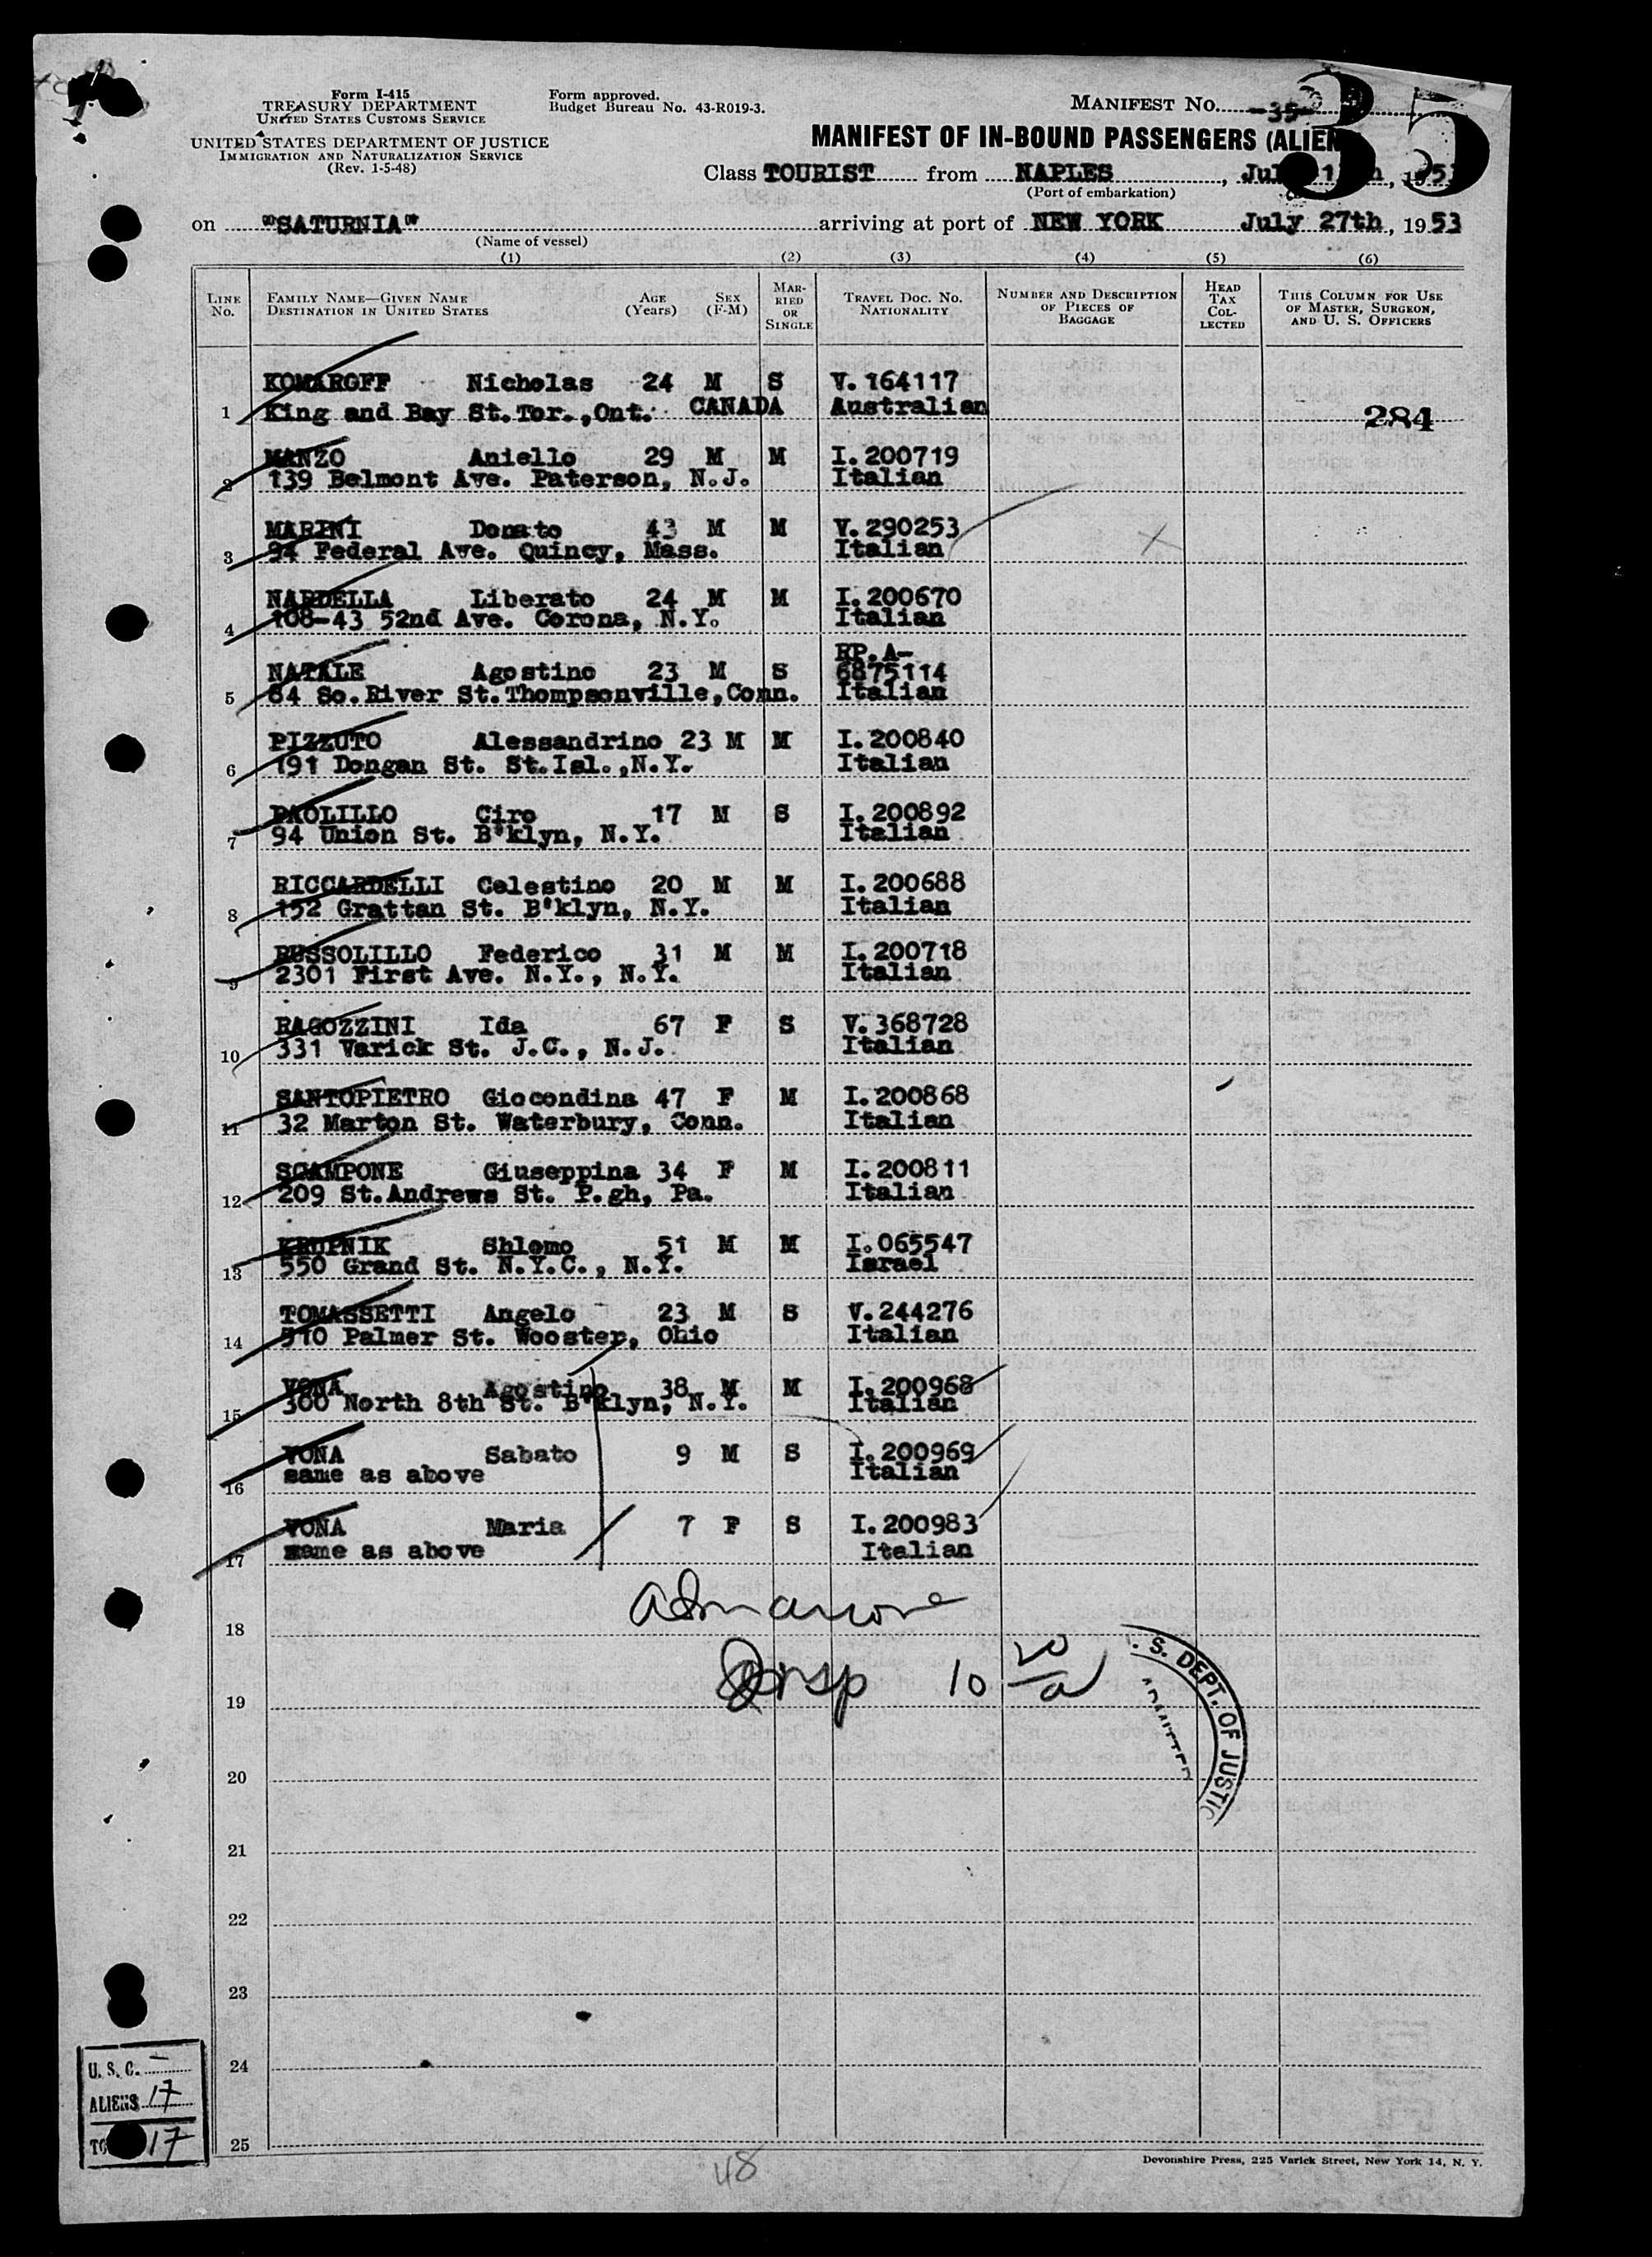 Form I-415
TREASURY DEPARTMENT
UNITED STATES CUSTOMS SERVICE
UNITED STATES DEPARTMENT OF JUSTICE
IMMIGRATION AND NATURALIZATION SERVICE
(Rev. 1-5-48)
Form approved.
Budget Bureau No. 43-R019-3.
MANIFEST No. -35-
35
MANIFEST OF IN-BOUND PASSENGERS (ALIEN
Class TOURIST from NAPLES, 1953
(Port of embarkation)
on "SATURNIA" arriving at port of NEW YORK July 27th, 1953
(Name of vessel)
(1) (2) (3) (4) (5) (6)
LINE No. FAMILY NAME—GIVEN NAME DESTINATION IN UNITED STATES AGE (Years) SEX (F-M) MARRIED OR SINGLE TRAVEL DOC. No. NATIONALITY NUMBER AND DESCRIPTION OF PIECES OF BAGGAGE HEAD TAX COLLECTED THIS COLUMN FOR USE OF MASTER, SURGEON, AND U. S. OFFICERS
KOMAROFF Nicholas 24 M S V. 164117
1 King and Bay St. Tor., Ont. CANADA Australian 284
MANZO Aniello 29 M M I. 200719
2 139 Belmont Ave. Paterson, N.J. Italian
MARINI Donato 43 M M V. 290253
3 94 Federal Ave. Quincy, Mass. Italian
NARDELLA Liberato 24 M M I. 200670
4 108-43 52nd Ave. Corona, N.Y. Italian
RP. A-
NATALE Agostino 23 M S 6875114
5 84 So. River St. Thompsonville, Conn. Italian
PIZZUTO Alessandrino 23 M M I. 200840
6 191 Dongan St. St. Isl., N.Y. Italian
PAOLILLO Ciro 17 M S I. 200892
7 94 Union St. B'klyn, N.Y. Italian
RICCARDELLI Celestino 20 M M I. 200688
8 152 Grattan St. B'klyn, N.Y. Italian
RUSSOLILLO Federico 31 M M I. 200718
9 2301 First Ave. N.Y., N.Y. Italian
RAGOZZINI Ida 67 F S V. 368728
10 331 Varick St. J.C., N.J. Italian
SANTOPIETRO Giocondina 47 F M I. 200868
11 32 Marton St. Waterbury, Conn. Italian
SCAMPONE Giuseppina 34 F M I. 200811
12 209 St. Andrews St. P.gh, Pa. Italian
KRUPNIK Shlomo 51 M M I. 065547
13 550 Grand St. N.Y.C., N.Y. Israel
TOMASSETTI Angelo 23 M S V. 244276
14 510 Palmer St. Wooster, Ohio Italian
VONA Agostino 38 M M I. 200968
15 300 North 8th St. B'klyn, N.Y. Italian
VONA Sabato 9 M S I. 200969
16 same as above Italian
VONA Maria 7 F S I. 200983
17 same as above Italian
18
19 10 20/a
. S. DEPT. OF JUSTIC
ADMITTED
20
21
22
23
24
25
U. S. C. -
ALIENS 17
TO 17
48
Devonshire Press, 225 Varick Street, New York 14, N. Y.